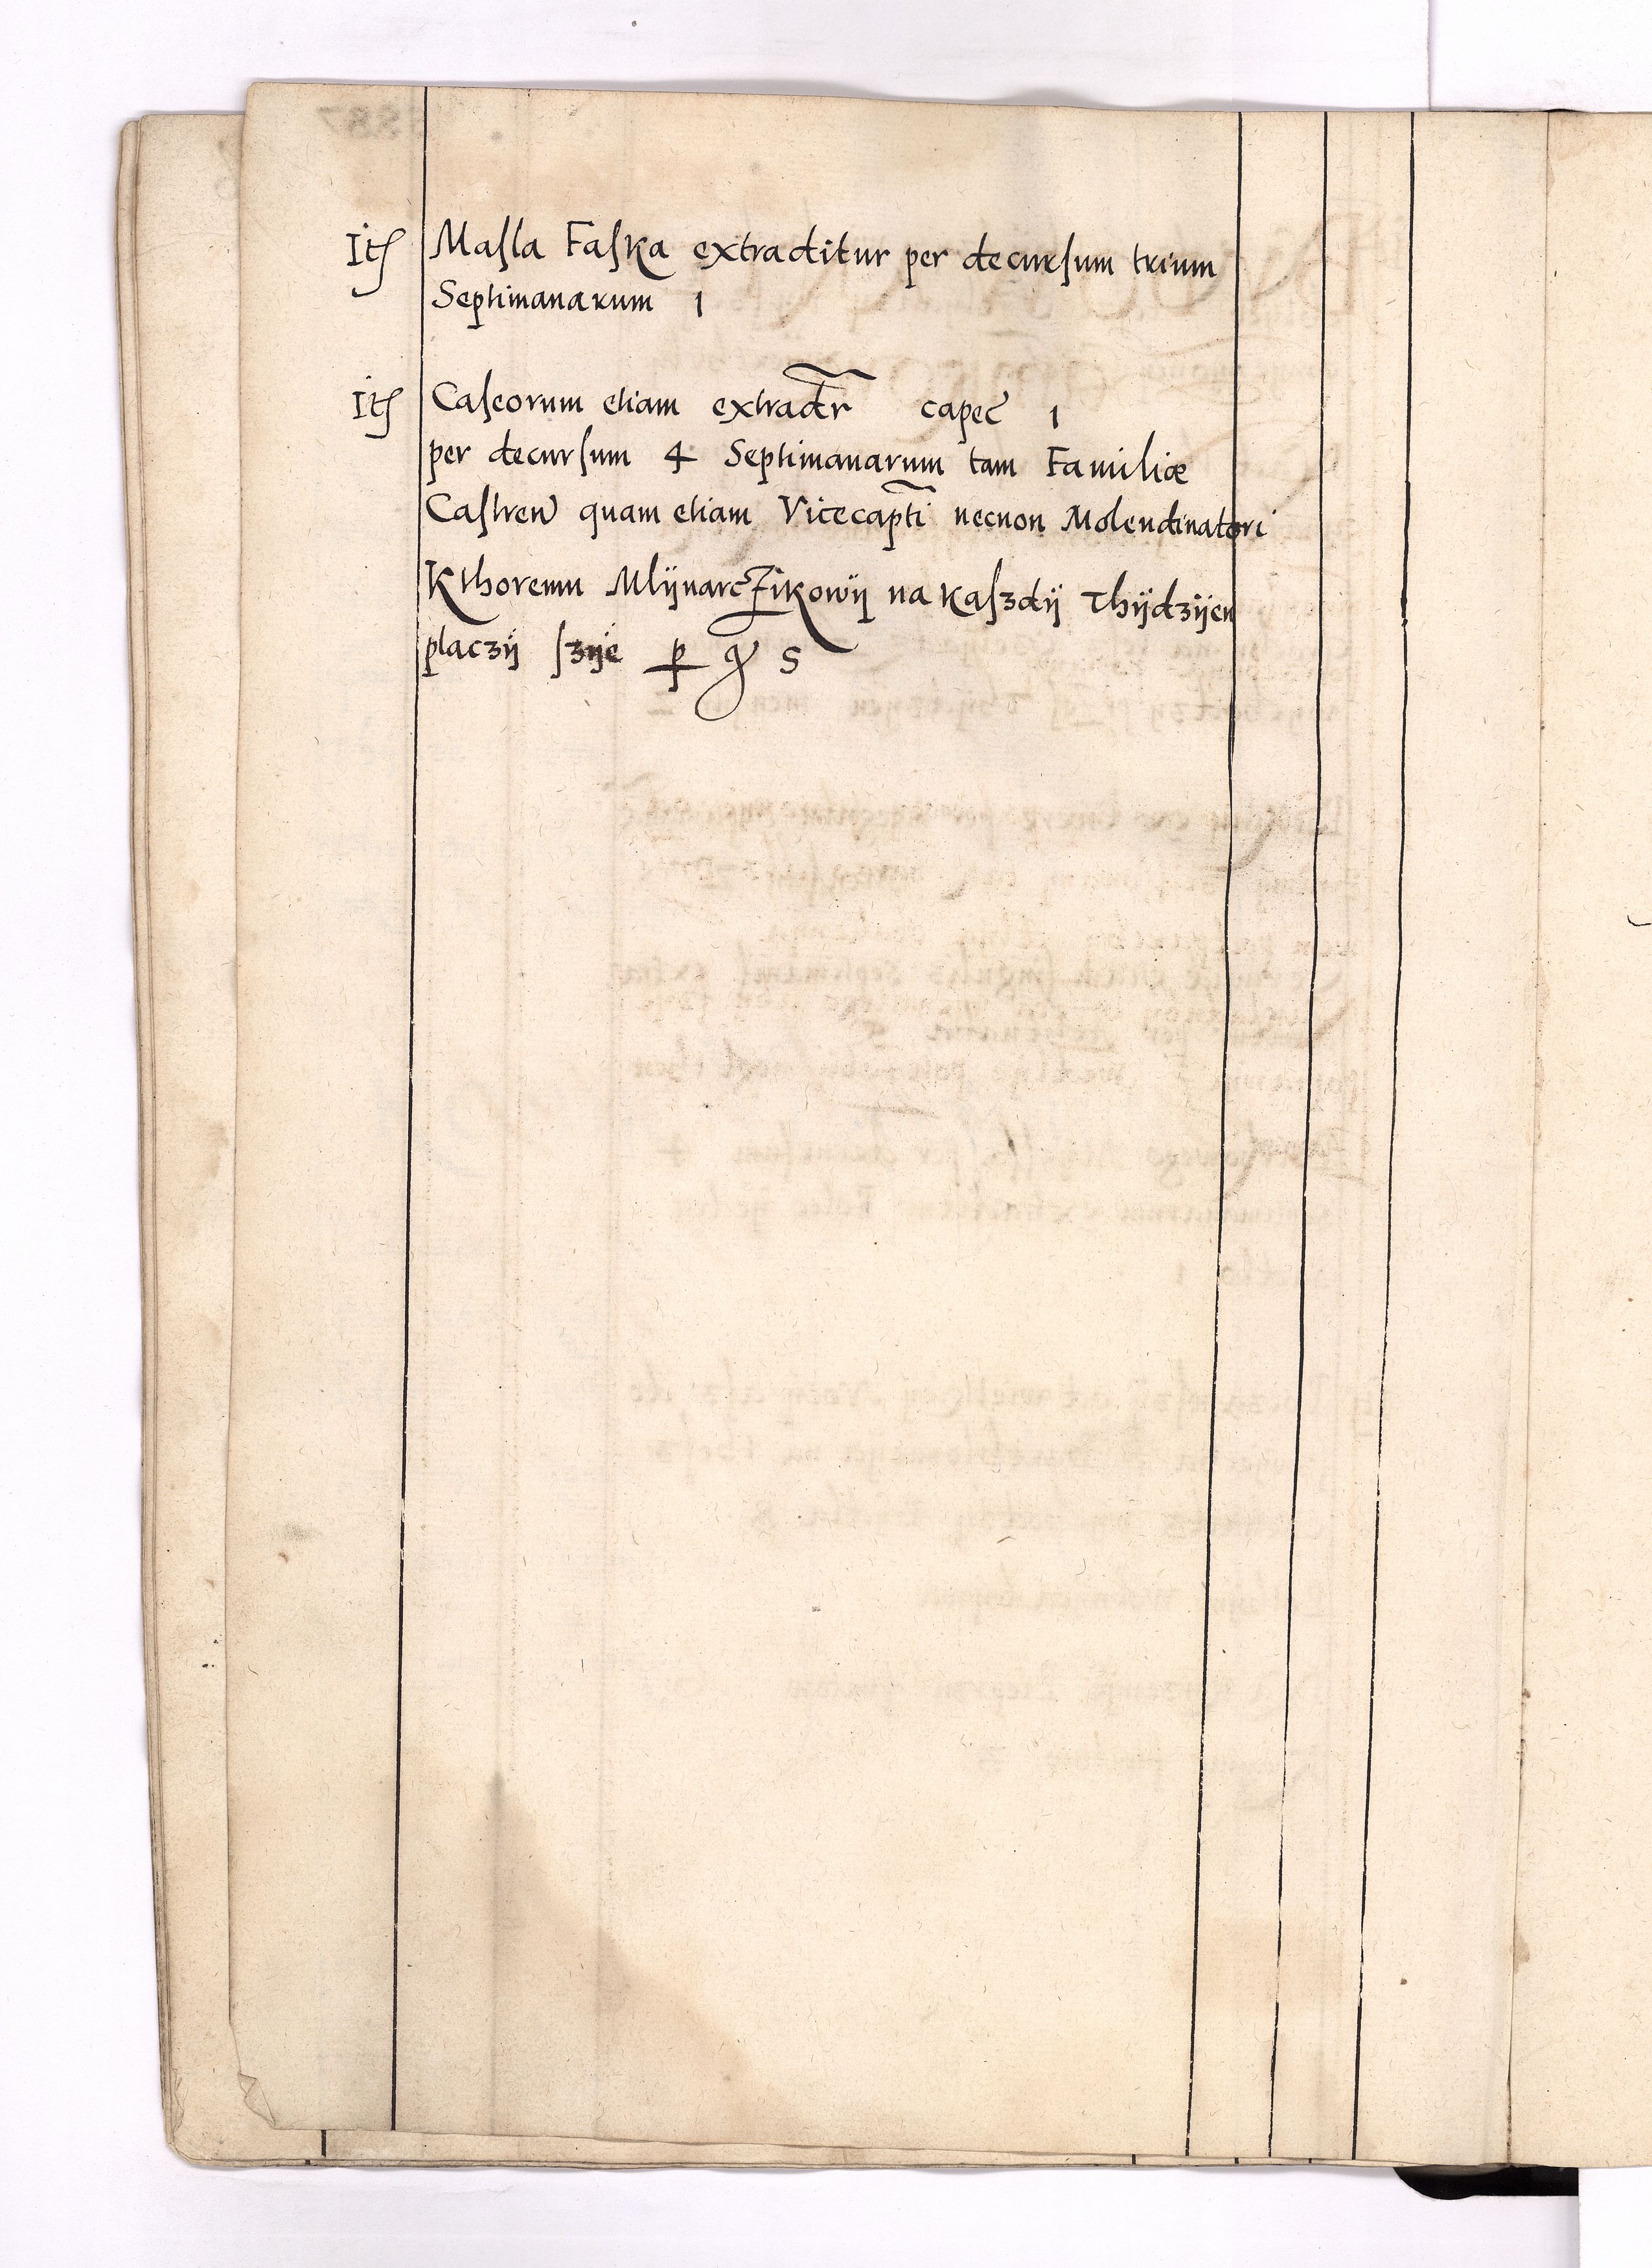 Itꝭ Maſla Faſka extraditur per decurſum trium
Septimanarum 1
Itꝭ Caſeorum etiam extradr̃ capec̃ 1
per decurſum 4 Septimanarum tam Familiæ
Caſtren̄ quam etiam Vicecapti̅ necnon Molendinatori
Kthoremu Mlÿnarcżikowÿ na kaſzdÿ Thÿdzÿen
placzÿ ſzÿe ꝑ gͬ 5